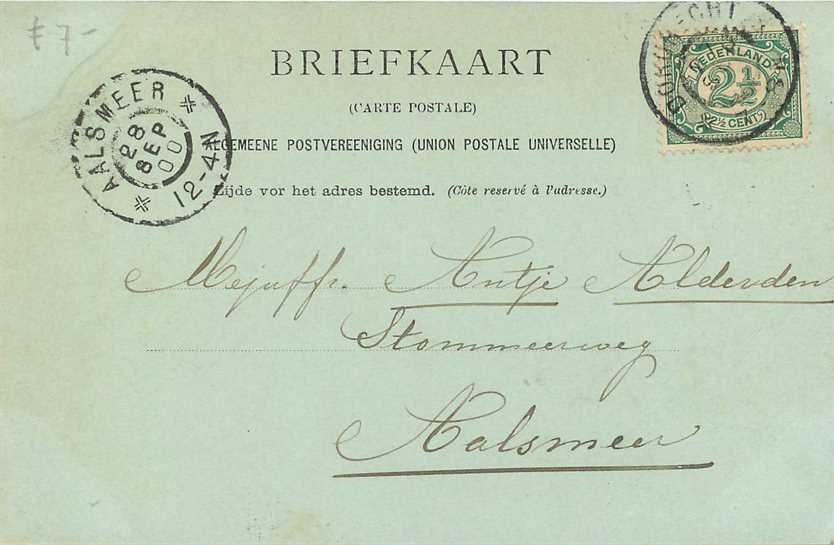 £ 7-
BRIEFKAART
(CARTE POSTALE)
ALGEMEENE POSTVEREENIGING (UNION POSTALE UNIVERSELLE)
Zijde vor het adres bestemd. (Côte reservé à l'adresse.)
AALSMEER
28
SEP
00
12-4N
DORDRECHT
NEDERLAND
2½
2½ CENT
Mejuffr. Antje Alderden
Stommeerweg
Aalsmeer